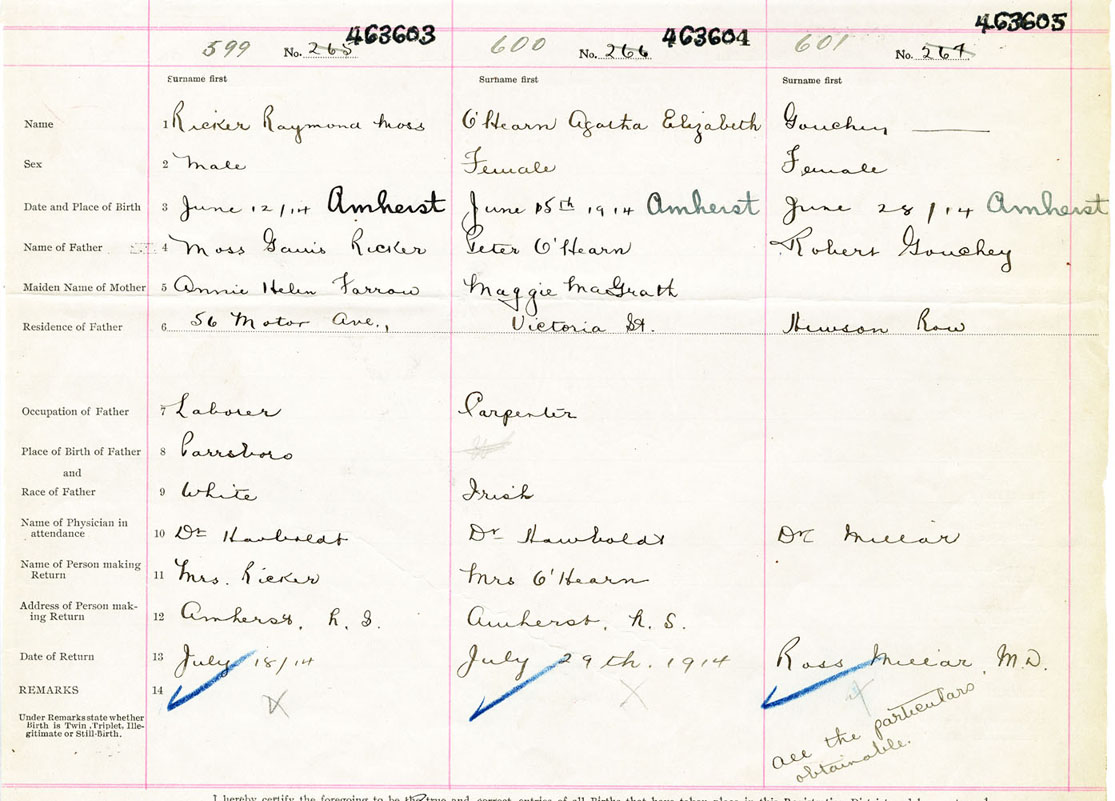 463603 463604 463605
599 No. 265 600 No. 266 601 No. 267
Surname first Surname first Surname first
Name 1 Ricker Raymond Moss O'Hearn Agatha Elizabeth Gouchey ——
Sex 2 Male Female Female
Date and Place of Birth 3 June 12/14 Amherst June 15th 1914 Amherst June 28/14 Amherst
Name of Father 4 Moss Ricker Peter O'Hearn Robert Gouchey
Maiden Name of Mother 5 Annie Helen Farrow Maggie MaGrath
Residence of Father 6 56 Motor Ave., Victoria St. Hewson Row
Occupation of Father 7 Laborer Carpenter
Place of Birth of Father 8 Parrsboro
and
Race of Father 9 White Irish
Name of Physician in
attendance 10 Dr Dr Hawboldt Dr Millar
Name of Person making
Return 11 Mrs. Ricker Mrs O'Hearn
Address of Person mak-
ing Return 12 Amherst, N. S. Amherst, N. S.
Date of Return 13 July 18/14 July 29th. 1914 Ross Millar, M.D.
REMARKS 14
Under Remarks state whether
Birth is Twin, Triplet, Ille-
gitimate or Still-Birth.
all the particulars
obtainable.
I hereby certify the foregoing to be the true and correct entries of all Births that have taken place in this Registration District